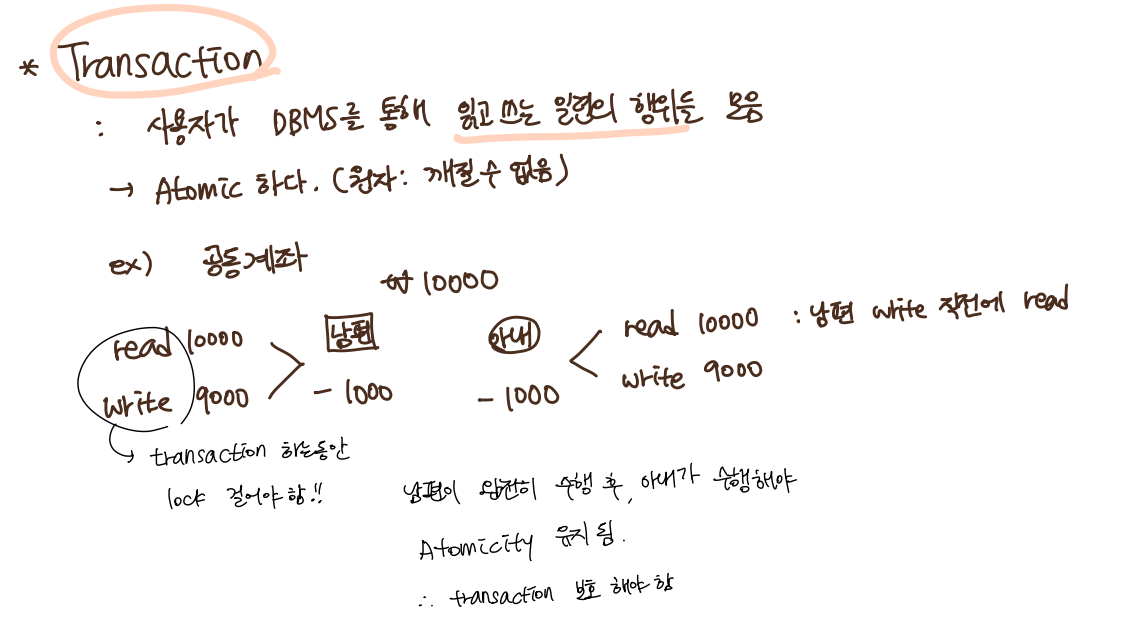 * Transaction
: 사용자가 DBMS를 통해 읽고 쓰는 일련의 행위들 모음
→ Atomic 하다. (원자: 깨질 수 없음)
ex) 공동계좌
₩ 10000
read 10000
write 9000
남편
- 1000
아내
- 1000
read 10000 : 남편 write 직전에 read
write 9000
transaction 하는동안
lock 걸어야 함!!
남편이 완전히 수행 후, 아내가 수행해야
Atomicity 유지 됨.
∴ transaction 보호 해야 함